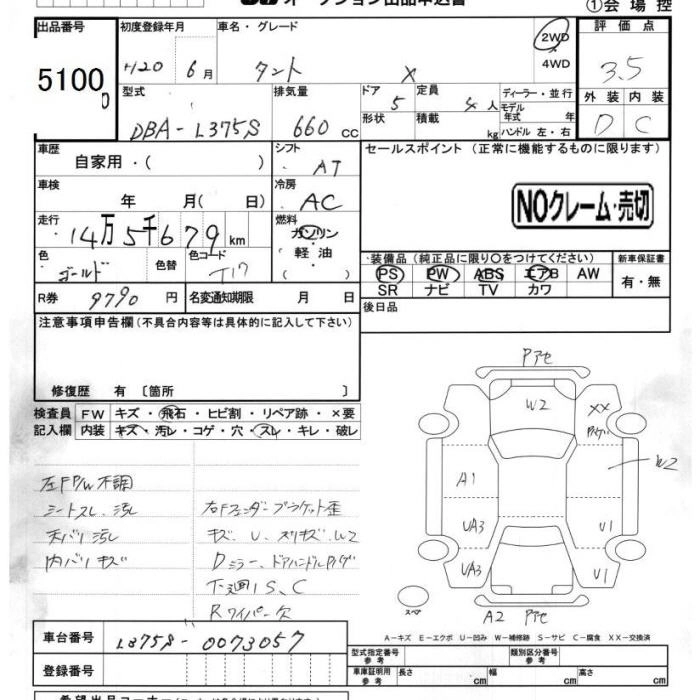 オークション出品申込書
①会場控
出品番号 初度登録年月 車名・グレード 評価点
5100 H20 6月 タント X 2WD 4WD 3.5
型式 排気量 ドア 定員 ディーラー・並行 外装 内装
DBA-L375S 660cc 5 4人 モデル年式 年式 D C
形状 積載 kg ハンドル 左・右
車歴 自家用・( ) シフト AT セールスポイント (正常に機能するものに限ります)
車検 年 月( 日) 冷房 AC
NOクレーム・売切
走行 14万5千679km 燃料 ガソリン 軽油 ( )
色 ゴールド 色替 色コード T17
装備品 (純正品に限り〇をつけてください) 新車保証書
PS PW ABS エアB AW 有・無
SR ナビ TV カワ
R券 9790円 名変通知期限 月 日 後日品
注意事項申告欄 (不具合内容等は具体的に記入して下さい)
修復歴 有 〔箇所 〕
検査員記入欄 FW キズ・飛石・ヒビ割・リペア跡・×要
内装 キズ・汚レ・コゲ・穴・スレ・キレ・破レ
左FP/W不調
シートスレ、汚レ
天バリ汚レ
内バリキズ
右Fフェンダーブラケット歪
キズ、U、スリキズ、W2
Dミラー、ドアハンドルPハゲ
下廻りS、C
Rワイパー欠
Pアセ
W2
XX
Pハゲ
W2
A1
UA3
U1
UA3
U1
スペア
A2 Pアセ
A-キズ E-エクボ U-凹み W-補修跡 S-サビ C-腐食 XX-交換済
車台番号 L375S-0073057
型式指定番号 参考 類別区分番号 参考
登録番号 車庫証明用 参考 長さ cm 幅 cm 高さ cm
希望出品コーナー